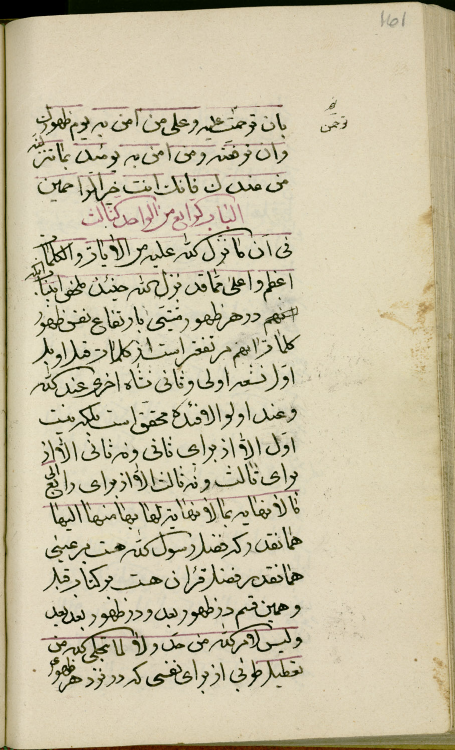 ۱۶۱
بان ترحمن علیه و علی من امن به یوم ظهورک
وان توفقنه ومن امن به یومئذ بما تنزلنه
من عندک فانک انت خیر الراحمین
الباب الرابع من الواحد الثالث
فی ان ما نزل الله علیه من الایات والکلمات
اعظم و اعلی مما قد نزل الله حینئذ
در هر ظهور مشیتی بارتفاع نفس ظهور
کلمات او هم مرتفعتر است از کلمات قبل او بل
اول نسبته اولی و ثانی نشأه اخری عند الله
وعند اولو الافئده محقق است بلکه نیست
اول الا از برای ثانی و نه ثانی الا از
برای ثالث و نه ثالث الا از برای رابع الی
مالا نهایه بما لا نهایه لها بها منها الیها
همانقدر که فضل رسول الله هست بر عیسی
همانقدر فضل قرآن هست بر کتاب قبل
و همین قسم در ظهور بعد و در ظهور بعد بعد
ولیس لامر الله من حد ولا لما تجلی الله من
تعطیل طوبی از برای نفسی که در نزد هر ظهور